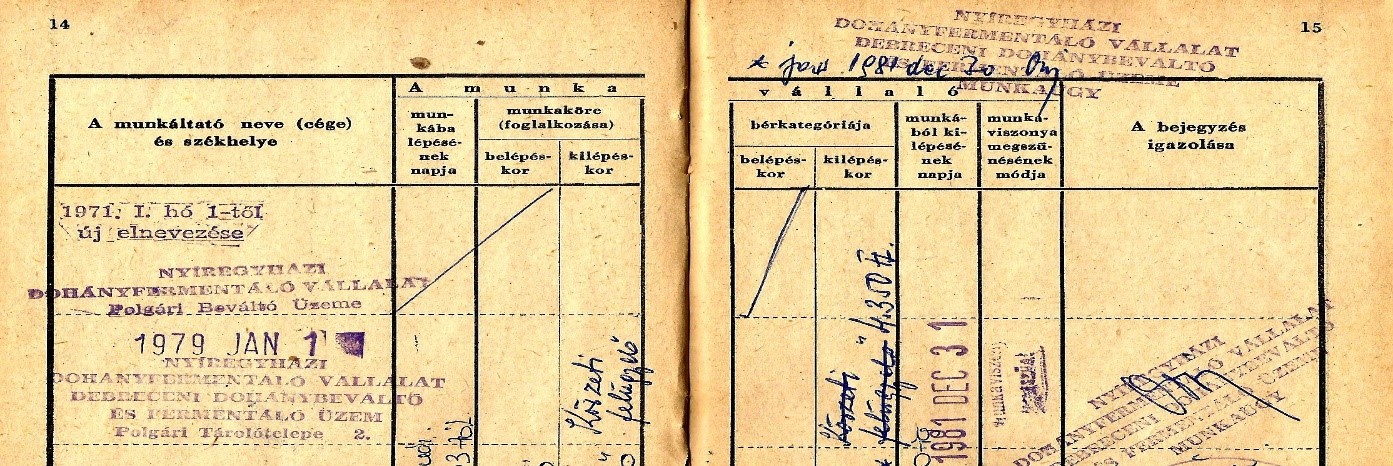 14
A munka
A munkáltató neve (cége)
és székhelye
mun-
kába
lépésé-
nek
napja
munkaköre
(foglalkozása)
belépés-
kor
kilépés-
kor
1971. I. hó 1-től
új elnevezése
NYÍREGYHÁZI
DOHÁNYFERMENTÁLÓ VÁLLALAT
Polgári Beváltó Üzeme
1979 JAN 1
NYÍREGYHÁZI
DOHÁNYFERMENTÁLÓ VÁLLALAT
DEBRECENI DOHÁNYBEVÁLTÓ
ÉS FERMENTÁLÓ ÜZEM
Polgári Tárolótelepe 2.
Körzeti
felügyelő
15
NYÍREGYHÁZI
DOHÁNYFERMENTÁLÓ VÁLLALAT
DEBRECENI DOHÁNYBEVÁLTÓ
ÉS FERMENTÁLÓ ÜZEME
MUNKAÜGY
1981 dec 30
vállaló
bérkategóriája
belépés-
kor
kilépés-
kor
munká-
ból ki-
lépésé-
nek
napja
munka-
viszonya
megszű-
nésének
módja
A bejegyzés
igazolása
Körzeti
felügyelő 4.350 Ft.
1981 DEC 3 1
NYÍREGYHÁZI
DOHÁNYFERMENTÁLÓ VÁLLALAT
DEBRECENI DOHÁNYBEVÁLTÓ
ÉS FERMENTÁLÓ ÜZEME
MUNKAÜGY